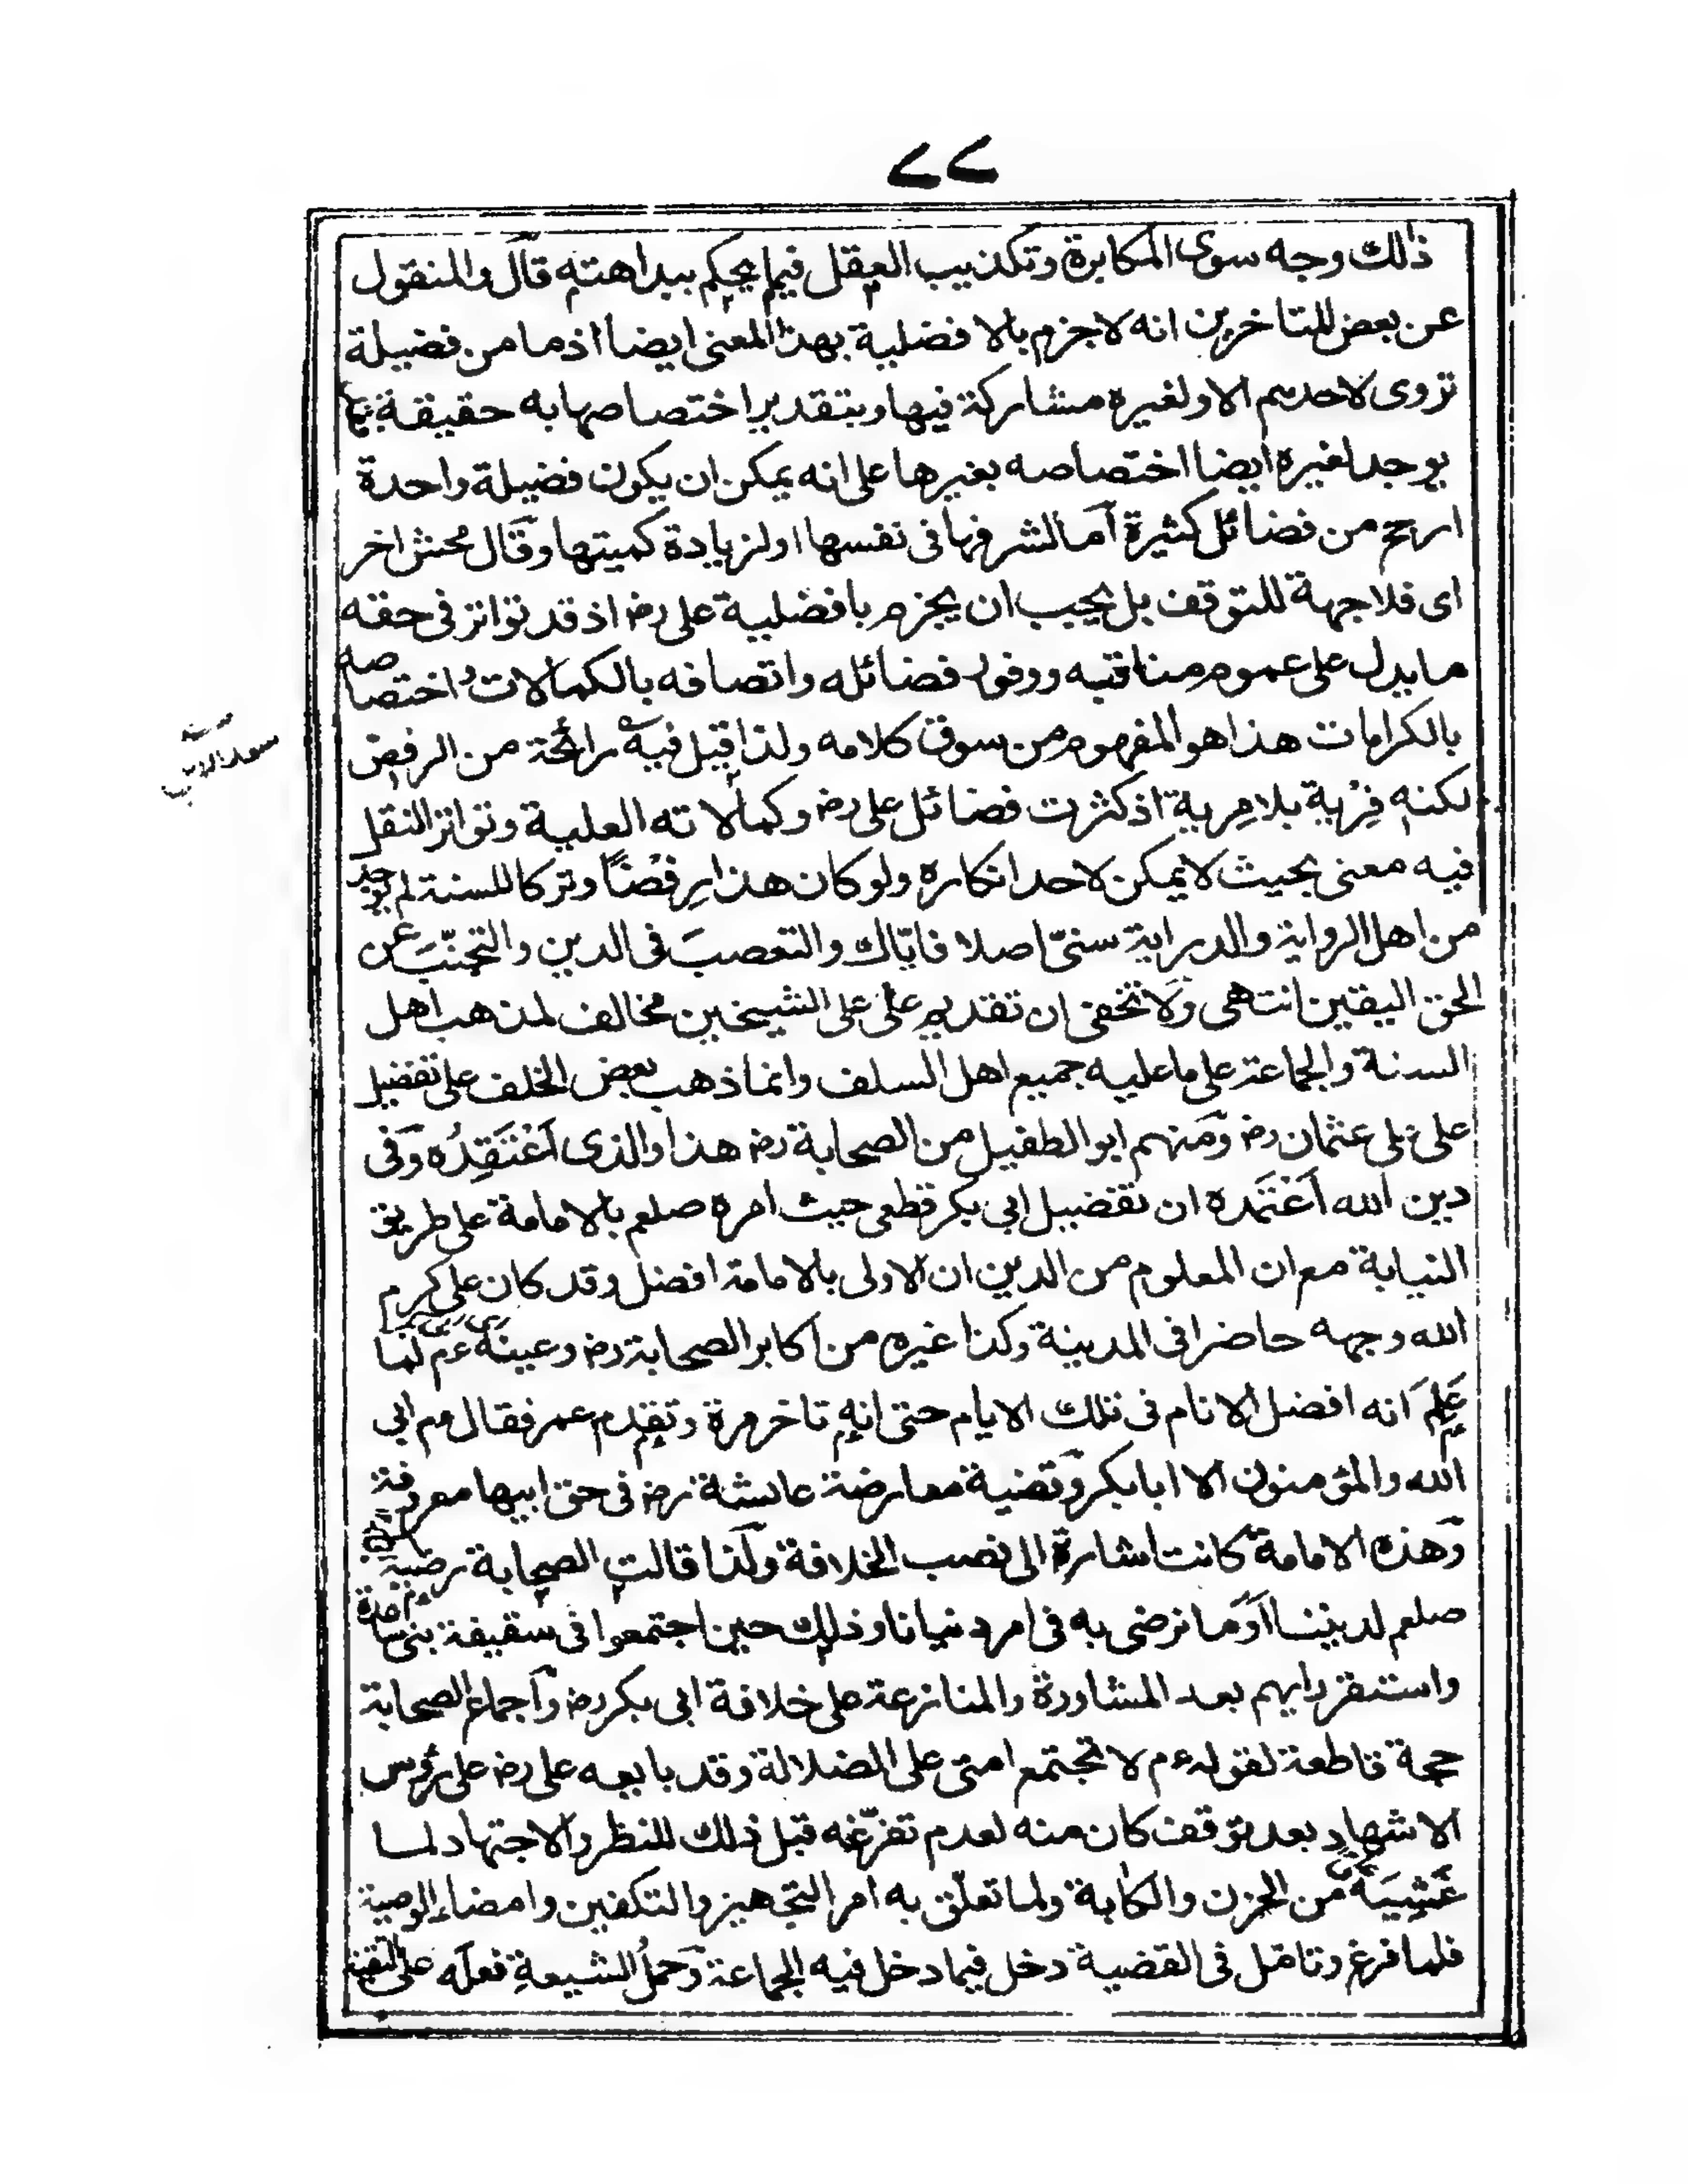 ۷۷
ذلك وجه سوى المكابرة وتكذيب العقل فيما يحكم ببداهته قال والمنقول
عن بعض المتاخرين انه لا جزم بالافضلية بهذا المعنى ايضا اذ ما من فضيلة
تروى لاحدهم الا ولغيره مشاركة فيها وبتقدير اختصاصها به حقيقة
يوجد لغيره ايضا اختصاصه بغيرها على انه يمكن ان يكون فضيلة واحدة
ارجح من فضائل كثيرة اما لشرفها فى نفسها او لزيادة كميتها وقال محش اخر
اى فلا جهة للتوقف بل يجب ان يجزم بافضلية على رض اذ قد تواتر فى حقه
ما يدل على عموم مناقبه ووفور فضائله واتصافه بالكمالات واختصاصه
بالكرامات هذا هو المفهوم من سوق كلامه ولذا قيل فيه رائحة من الرفض
لكنه فِرْية بلا مِرية اذ كثرت فضائل على رض وكمالاته العلية وتواتر النقل
فيه معنى بحيث لا يمكن لاحد انكاره ولو كان هذا رِفضًا وتركا للسنة لم يوجد
من اهل الرواية والدراية سنىّ اصلا فايّاك والتعصبَ فى الدين والتجنّبَ عن
الحق اليقين انتهى ولا تخفى ان تقديم على على الشيخين مخالف لمذهب اهل
السنة والجماعة على ما عليه جميع اهل السلف وانما ذهب بعض الخلف على تفضيل
على على عثمان رض ومنهم ابو الطفيل من الصحابة رض هذا والذى اَعْتَقِدُه وفى
دين الله اَعْتَمَده ان تفضيل ابى بكر قطعى حيث امره صلعم بالامامة على طريق
النيابة مع ان المعلوم من الدين ان الاولى بالامامة افضل وقد كان على كرم
الله وجهه حاضرا فى المدينة وكذا غيره من اكابر الصحابة رض وعينه عم لما
عَلِمَ انه افضل الانام فى تلك الايام حتى انه تاخر مرة وتقدم عمر فقال عم ابى
الله والمؤمنون الا ابا بكر وقضية معارضة عايشة رض فى حق ابيها معروفة
وهذه الامامة كانت اشارة الى نصب الخلافة ولذا قالت الصحابة رضيه
صلعم لديننا اوَما نرضى به فى امر دنيانا وذلك حين اجتمعوا فى سقيفة بنى ساعدة
واستقر رايهم بعد المشاورة والمنازعة على خلافة ابى بكر رض واجماع الصحابة
حجة قاطعة لقوله عم لا تجتمع امتى على الضلالة وقد بايعه على رض على رؤس
الاشهاد بعد توقف كان منه لعدم تفرّغه قبل ذلك للنظر والاجتهاد لما
غَشِيَه من الحزن والكابة ولما تعلّق به امر التجهيز والتكفين وامضاء الوصية
فلما فرغ وتامّل فى القضية دخل فيما دخل فيه الجماعة وحملُ الشيعةِ فعلَه على التقية